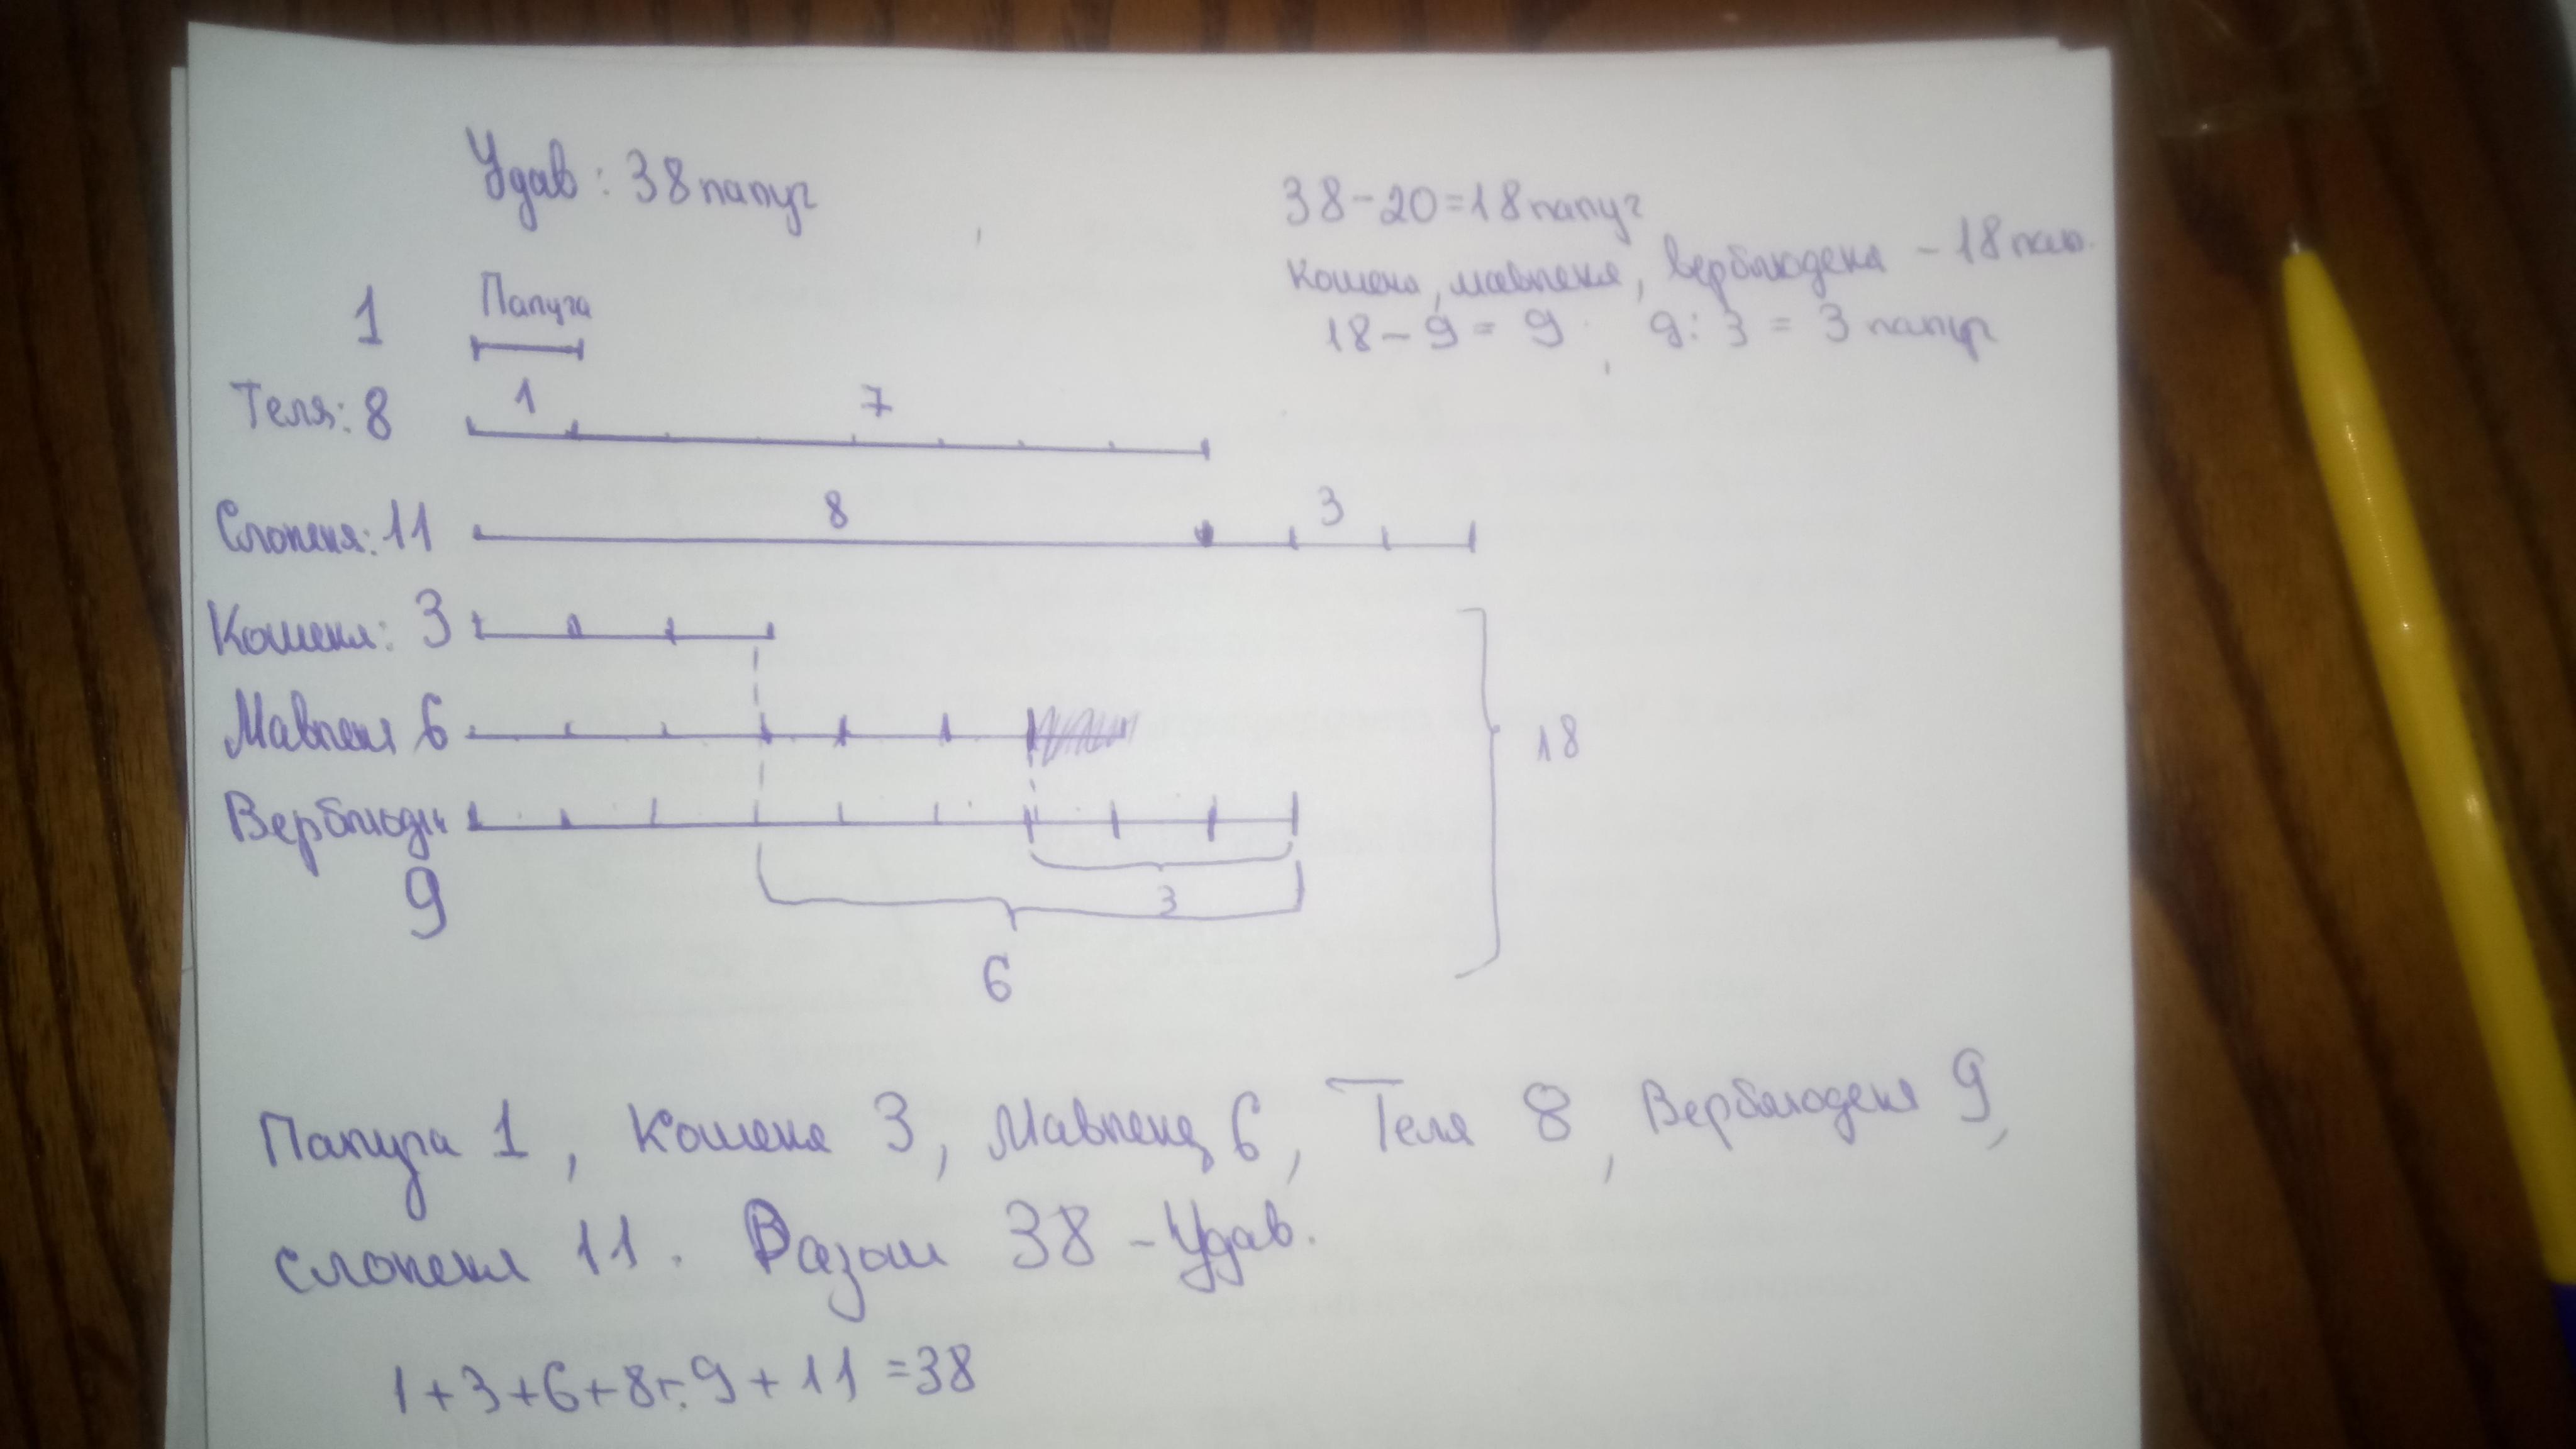 Удав: 38 папуг
38-20=18 папуг
Кошеня, мавпеня, верблюденя - 18 пап.
18-9=9, 9:3=3 папуг
1 Папуга
Теля: 8 1 7
Слоненя: 11 8 3
Кошеня: 3
Мавпеня 6
18
Верблюден
9
3
6
Папуга 1, Кошеня 3, Мавпеня 6, Теля 8, Верблюденя 9,
слоненя 11. Разом 38 - Удав.
1+3+6+8+9+11=38